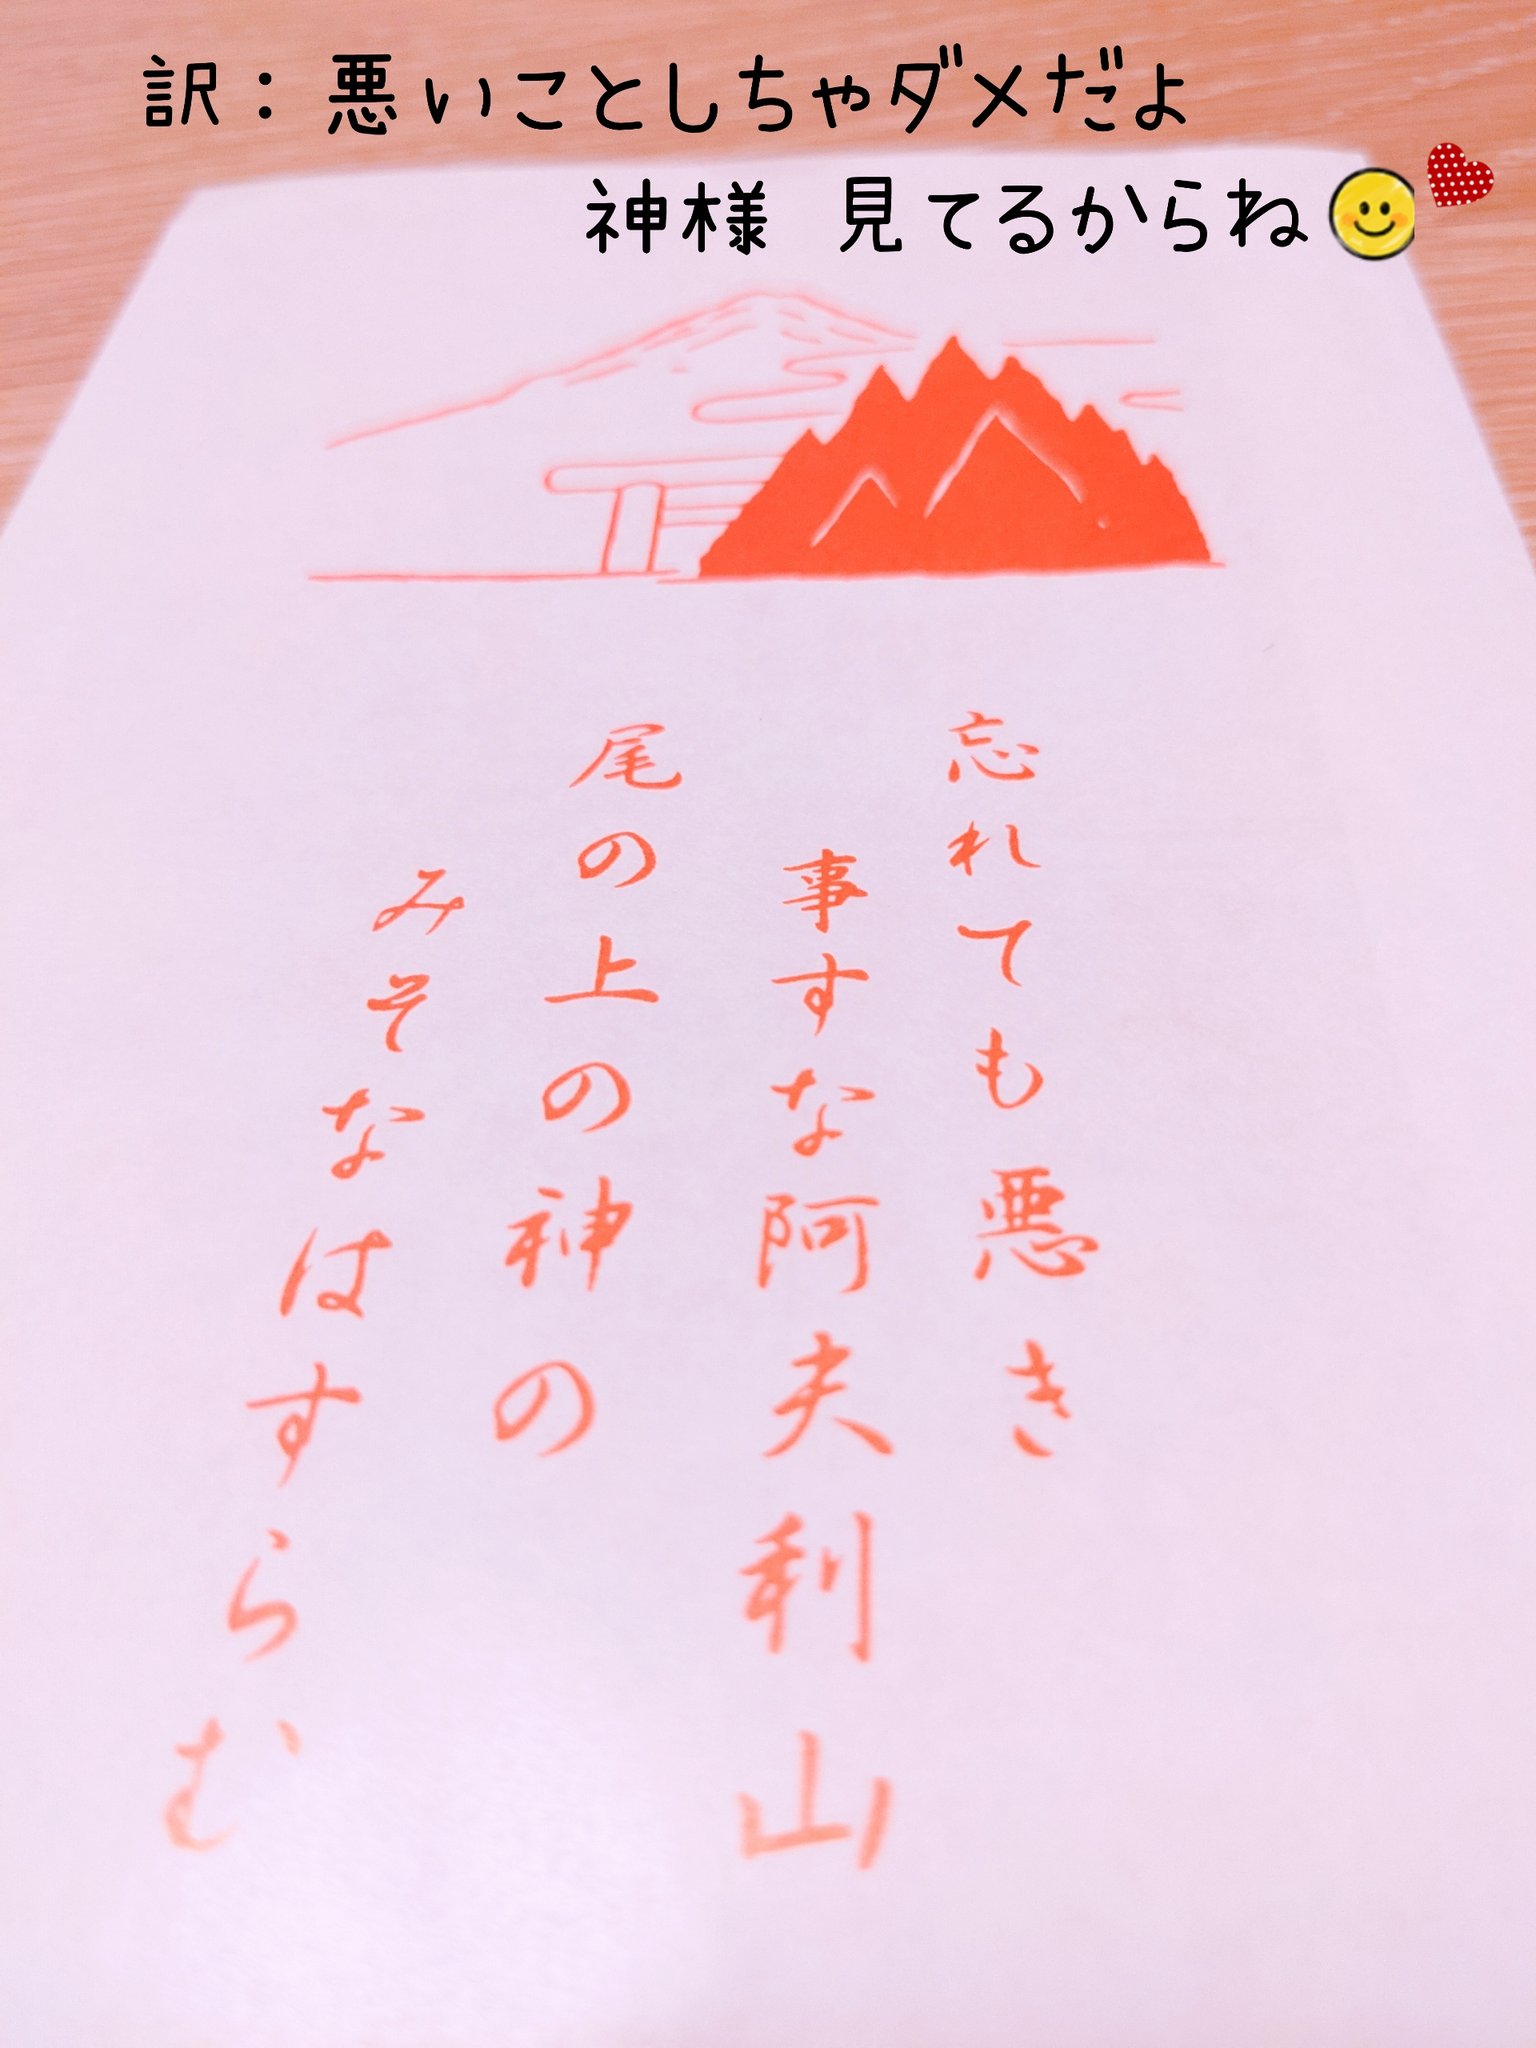 訳：悪いことしちゃダメだよ
神様 見てるからね
忘れても悪き
事すな阿夫利山
尾の上の神の
みそなはすらむ